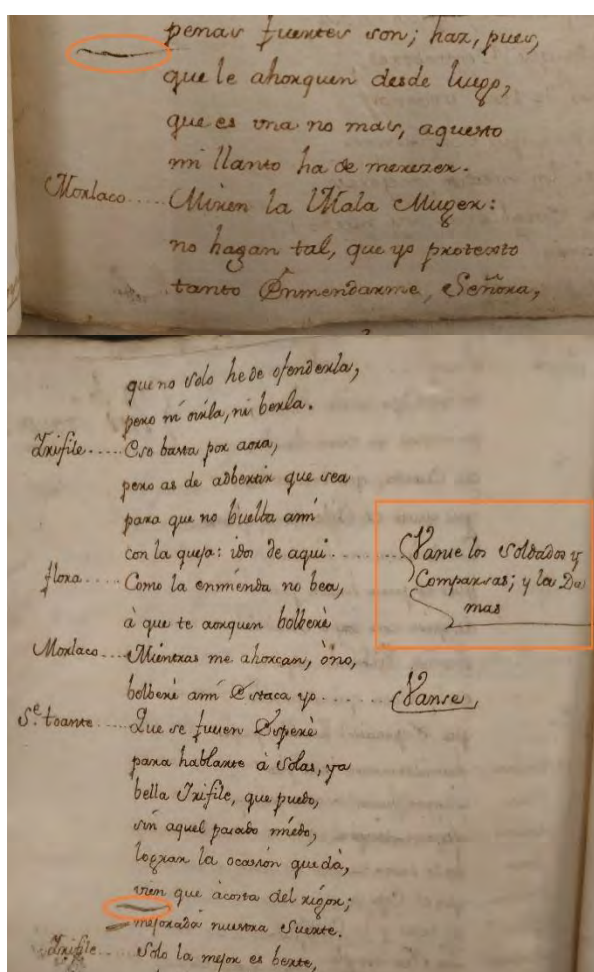 penas fuentes son; haz, pues,
que le ahorquen desde luego,
que es una no mas, aquesto
mi llanto ha de merezer.
Morlaco.... Miren la Mala Muger:
no hagan tal, que yo protexto
tanto Enmendarme, Señora,
que no solo he de ofenderla,
pero ni oirla, ni berla.
Irifile..... Eso basta por aora,
pero as de adbertir que sea
para que no buelba ami
con la queja: idos de aqui......... Vanse los Soldados y
Comparsas; y la Da
mas
flora.... Como la enmienda no bea,
à que te aorquen bolberè
Morlaco... Mientras me ahorcan, ò no,
bolberè ami Estaca yo...... Vanse,
Se. toante.... Que se fuesen Esperè
para hablarte à Solas, ya
bella Irifile, que puedo,
sin aquel pasado miedo,
lograr la ocasion que dà,
vien que àcosta del rigor;
mejorada nuestra Suerte.
Irifile... Solo la mejor es berte,